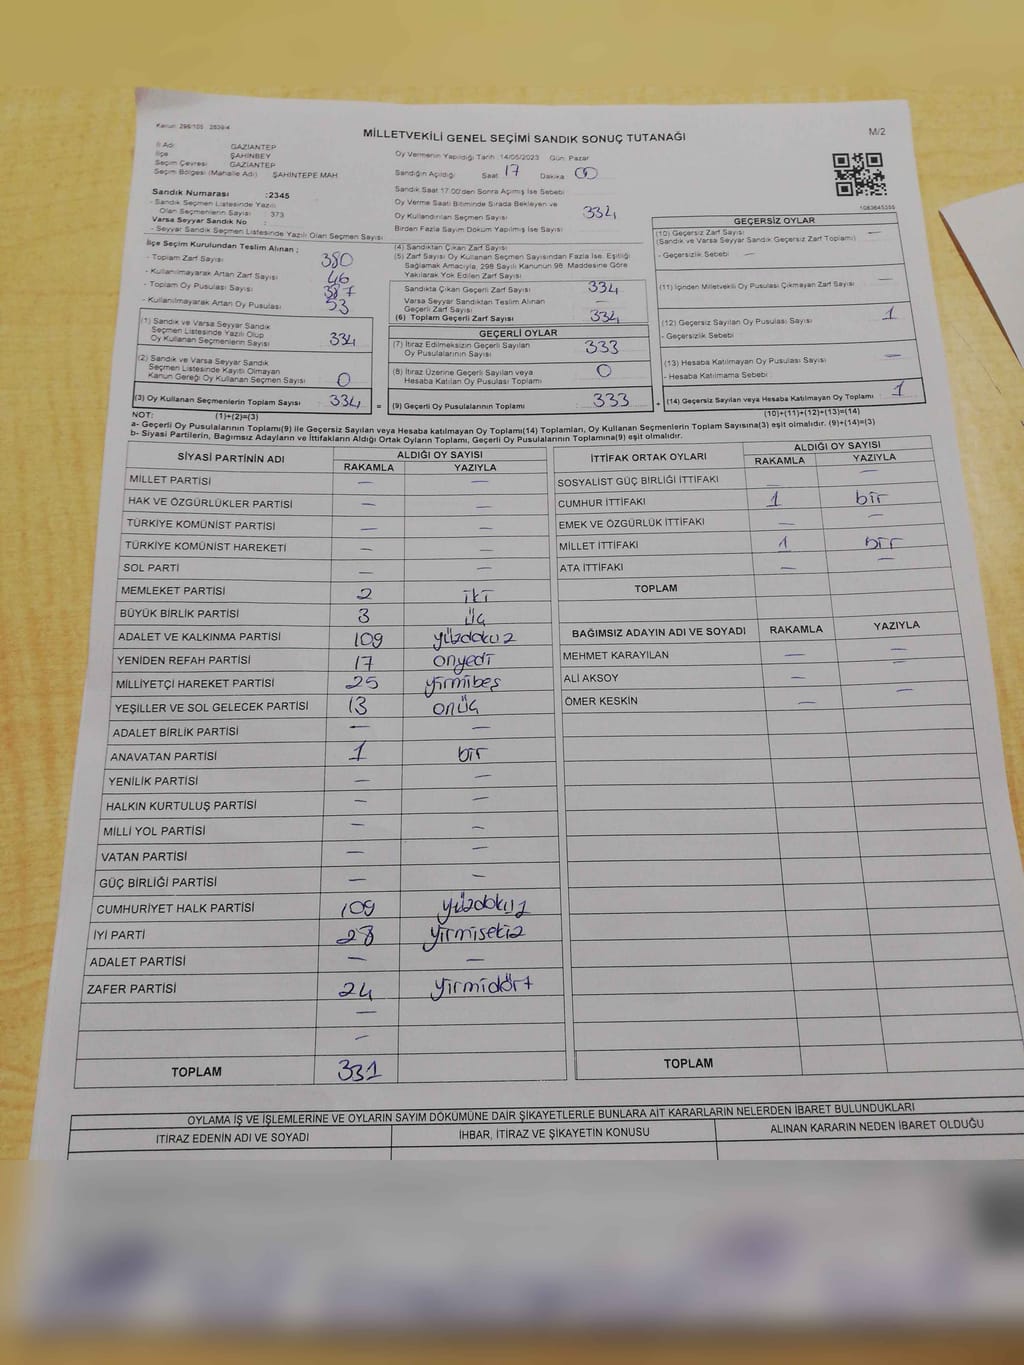 Kanun: 298/105 2839/4
MİLLETVEKİLİ GENEL SEÇİMİ SANDIK SONUÇ TUTANAĞI
M/2
İl Adı : GAZİANTEP
İlçe : ŞAHİNBEY
Seçim Çevresi : GAZİANTEP
Seçim Bölgesi (Mahalle Adı) : ŞAHİNTEPE MAH
Oy Vermenin Yapıldığı Tarih: 14/05/2023 Gün: Pazar
Sandığın Açıldığı Saat 17 Dakika 00
Sandık Saat 17:00'den Sonra Açılmış İse Sebebi
Oy Verme Saati Bitiminde Sırada Bekleyen ve
Oy Kullandırılan Seçmen Sayısı 334
Birden Fazla Sayım Döküm Yapılmış İse Sayısı
1083645355
Sandık Numarası : 2345
- Sandık Seçmen Listesinde Yazılı
Olan Seçmenlerin Sayısı : 373
Varsa Seyyar Sandık No :
- Seyyar Sandık Seçmen Listesinde Yazılı Olan Seçmen Sayısı
İlçe Seçim Kurulundan Teslim Alınan ;
- Toplam Zarf Sayısı 380
- Kullanılmayarak Artan Zarf Sayısı 46
- Toplam Oy Pusulası Sayısı 387
- Kullanılmayarak Artan Oy Pusulası 53
(1) Sandık ve Varsa Seyyar Sandık
Seçmen Listesinde Yazılı Olup
Oy Kullanan Seçmenlerin Sayısı 334
(2) Sandık ve Varsa Seyyar Sandık
Seçmen Listesinde Kayıtlı Olmayan
Kanun Gereği Oy Kullanan Seçmen Sayısı 0
(3) Oy Kullanan Seçmenlerin Toplam Sayısı 334 =
(4) Sandıktan Çıkan Zarf Sayısı
(5) Zarf Sayısı Oy Kullanan Seçmen Sayısından Fazla İse, Eşitliği
Sağlamak Amacıyla, 298 Sayılı Kanunun 98. Maddesine Göre
Yakılarak Yok Edilen Zarf Sayısı
Sandıkta Çıkan Geçerli Zarf Sayısı 334
Varsa Seyyar Sandıktan Teslim Alınan
Geçerli Zarf Sayısı —
(6) Toplam Geçerli Zarf Sayısı 334
GEÇERLİ OYLAR
(7) İtiraz Edilmeksizin Geçerli Sayılan
Oy Pusulalarının Sayısı 333
(8) İtiraz Üzerine Geçerli Sayılan veya
Hesaba Katılan Oy Pusulası Toplamı 0
(9) Geçerli Oy Pusulalarının Toplamı : 333 +
GEÇERSİZ OYLAR
(10) Geçersiz Zarf Sayısı —
(Sandık ve Varsa Seyyar Sandık Geçersiz Zarf Toplamı)
- Geçersizlik Sebebi —
(11) İçinden Milletvekili Oy Pusulası Çıkmayan Zarf Sayısı —
(12) Geçersiz Sayılan Oy Pusulası Sayısı 1
- Geçersizlik Sebebi
(13) Hesaba Katılmayan Oy Pusulası Sayısı —
- Hesaba Katılmama Sebebi
(14) Geçersiz Sayılan veya Hesaba Katılmayan Oy Toplamı : 1
NOT: (1)+(2)=(3) (10)+(11)+(12)+(13)=(14)
a- Geçerli Oy Pusulalarının Toplamı(9) ile Geçersiz Sayılan veya Hesaba Katılmayan Oy Toplamı(14) Toplamları, Oy Kullanan Seçmenlerin Toplam Sayısına(3) eşit olmalıdır. (9)+(14)=(3)
b- Siyasi Partilerin, Bağımsız Adayların ve İttifakların Aldığı Ortak Oyların Toplamı, Geçerli Oy Pusulalarının Toplamına(9) eşit olmalıdır.
SİYASİ PARTİNİN ADI ALDIĞI OY SAYISI
RAKAMLA YAZIYLA
MİLLET PARTİSİ — —
HAK VE ÖZGÜRLÜKLER PARTİSİ — —
TÜRKİYE KOMÜNİST PARTİSİ — —
TÜRKİYE KOMÜNİST HAREKETİ — —
SOL PARTİ — —
MEMLEKET PARTİSİ 2 iki
BÜYÜK BİRLİK PARTİSİ 3 üç
ADALET VE KALKINMA PARTİSİ 109 yüzdokuz
YENİDEN REFAH PARTİSİ 17 onyedi
MİLLİYETÇİ HAREKET PARTİSİ 25 yirmibeş
YEŞİLLER VE SOL GELECEK PARTİSİ 13 onüç
ADALET BİRLİK PARTİSİ — —
ANAVATAN PARTİSİ 1 bir
YENİLİK PARTİSİ — —
HALKIN KURTULUŞ PARTİSİ — —
MİLLİ YOL PARTİSİ — —
VATAN PARTİSİ — —
GÜÇ BİRLİĞİ PARTİSİ — —
CUMHURİYET HALK PARTİSİ 109 yüzdokuz
İYİ PARTİ 28 yirmisekiz
ADALET PARTİSİ — —
ZAFER PARTİSİ 24 yirmidört
—
—
TOPLAM 331
İTTİFAK ORTAK OYLARI ALDIĞI OY SAYISI
RAKAMLA YAZIYLA
SOSYALİST GÜÇ BİRLİĞİ İTTİFAKI — —
CUMHUR İTTİFAKI 1 bir
EMEK VE ÖZGÜRLÜK İTTİFAKI — —
MİLLET İTTİFAKI 1 bir
ATA İTTİFAKI — —
TOPLAM
BAĞIMSIZ ADAYIN ADI VE SOYADI RAKAMLA YAZIYLA
MEHMET KARAYILAN — —
ALİ AKSOY — —
ÖMER KESKİN — —
TOPLAM
OYLAMA İŞ VE İŞLEMLERİNE VE OYLARIN SAYIM DÖKÜMÜNE DAİR ŞİKAYETLERLE BUNLARA AİT KARARLARIN NELERDEN İBARET BULUNDUKLARI
İTİRAZ EDENİN ADI VE SOYADI İHBAR, İTİRAZ VE ŞİKAYETİN KONUSU ALINAN KARARIN NEDEN İBARET OLDUĞU